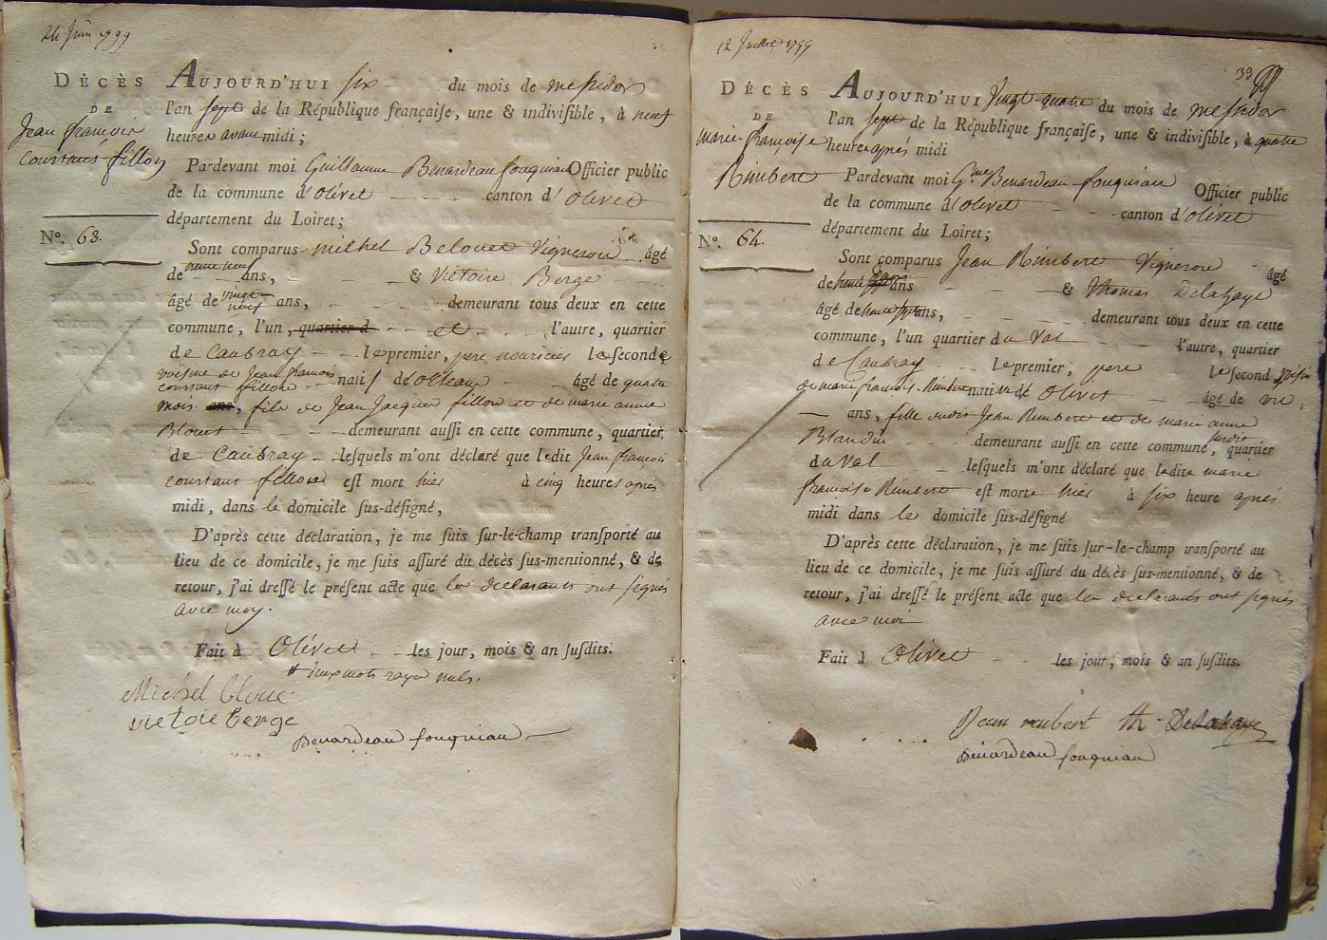 24 Juin 1799
DÉCÈS
DE
Jean françois
constant fillon
N°. 63.
AUJOURD'HUI six du mois de messidor
l'an sept de la République françaiſe, une & indiviſible, à neuf
heures avant midi;
Pardevant moi Guillaume Benardeau fouqueau Officier public
de la commune d'Olivet canton d'Olivet
département du Loiret;
Sont comparus Michel Belouet Vigneron âgé
de trente neuf ans, & Victoire Berge
âgé de vingt neuf ans, demeurant tous deux en cette
commune, l'un, quartier d et l'autre, quartier
de Caubray le premier, pere nourricier le ſeconde
voisine de Jean francois
constant fillon natif d'Orleans âgé de quatre
mois ans, fils de Jean Jacques fillon et de marie anne
Blouet demeurant auſſi en cette commune, quartier
de Caubray leſquels m'ont déclaré que ledit Jean francois
constant fillon eſt mort hier à cinq heures après
midi, dans le domicile ſus-déſigné,
D'après cette déclaration, je me ſuis ſur-le-champ tranſporté au
lieu de ce domicile, je me ſuis aſſuré du décès ſus-mentionné, & de
retour, j'ai dreſſé le préſent acte que les declarants ont signés
avec moy.
Fait à Olivet les jour, mois & an ſuſdits.
mots rayés nuls.
Michel bloue
victoie berge
Benardeau fouquiau
12 Juillet 1799
33
DÉCÈS
DE
marie françoise
Rimbert
N°. 64.
AUJOURD'HUI Vingt-quatre du mois de messidor
l'an sept de la République françaiſe, une & indiviſible, à quatre
heures après midi
Pardevant moi Gme Benardeau fouquiau Officier public
de la commune d'Olivet canton d'Olivet
département du Loiret;
Sont comparus Jean Rimbert Vigneron âgé
de trente ans & Thomas Delahaye
âgé de ans, demeurant tous deux en cette
commune, l'un quartier du Val l'autre, quartier
de Caubray le premier, pere le ſecond voisin
de marie francoise Rimbert native d'Olivet âgé de un
ans, fille dudit Jean Rimbert et de marie anne
Blandin demeurant auſſi en cette commune, susdit quartier
du Val leſquels m'ont déclaré que ladite marie
francoise Rimbert eſt morte hier à six heure après
midi dans le domicile ſus-déſigné
D'après cette déclaration, je me ſuis ſur-le-champ tranſporté au
lieu de ce domicile, je me ſuis aſſuré du décès ſus-mentionné, & de
retour, j'ai dreſſé le préſent acte que les declarants ont signés
avec moi
Fait à Olivet les jour, mois & an ſuſdits.
Jean reubert th Delahaye
Benardeau fouquiau